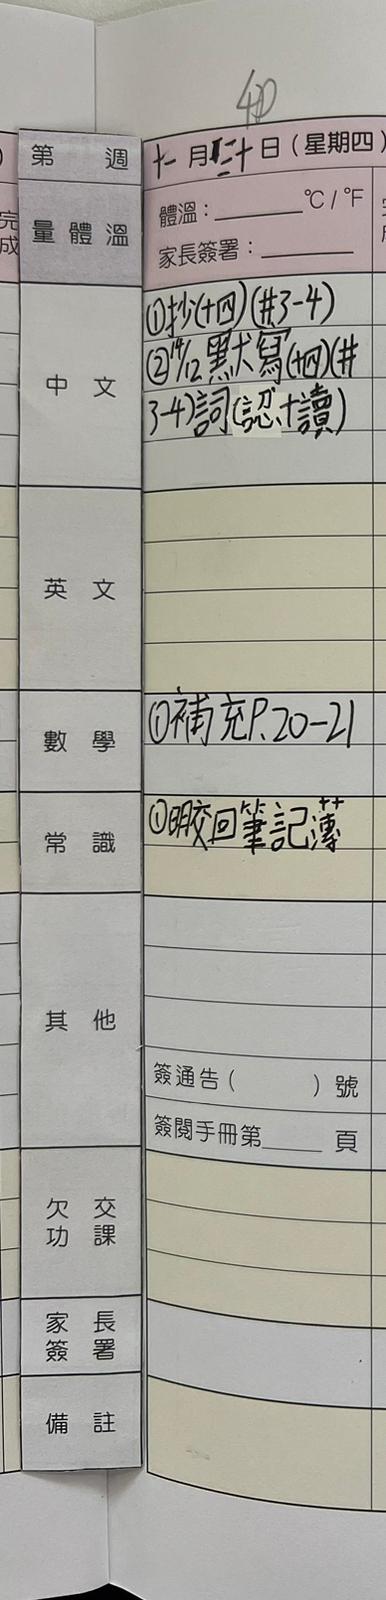 4D
第 週
十一月二十日(星期四)
量體溫
體溫：______°C / °F
家長簽署：______
完成
中文
①抄(十四)(#3-4)
②14/12默寫(十四)(#
3-4)詞(認+讀)
英文
數學
①補充P.20-21
常識
①明交回筆記薄
其他
簽通告( )號
簽閱手冊第____頁
欠交
功課
家長
簽署
備註